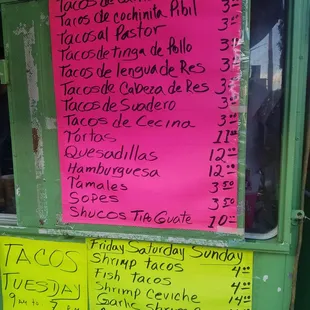 Tacos de cochinita Pibil 3
Tacos al Pastor 3
Tacos de tinga de Pollo 3
Tacos de lengua de Res 3
Tacos de Cabeza de Res 3
Tacos de Suadero 3
Tacos de Cecina 3
Tortas 11
Quesadillas 12
Hamburguesa 12
Tamales 3.50
Sopes 3.50
Shucos Tipo Guate 10
TACOS
TUESDAY
Friday Saturday Sunday
Shrimp tacos 4
Fish tacos 4
Shrimp ceviche 14
Garlic